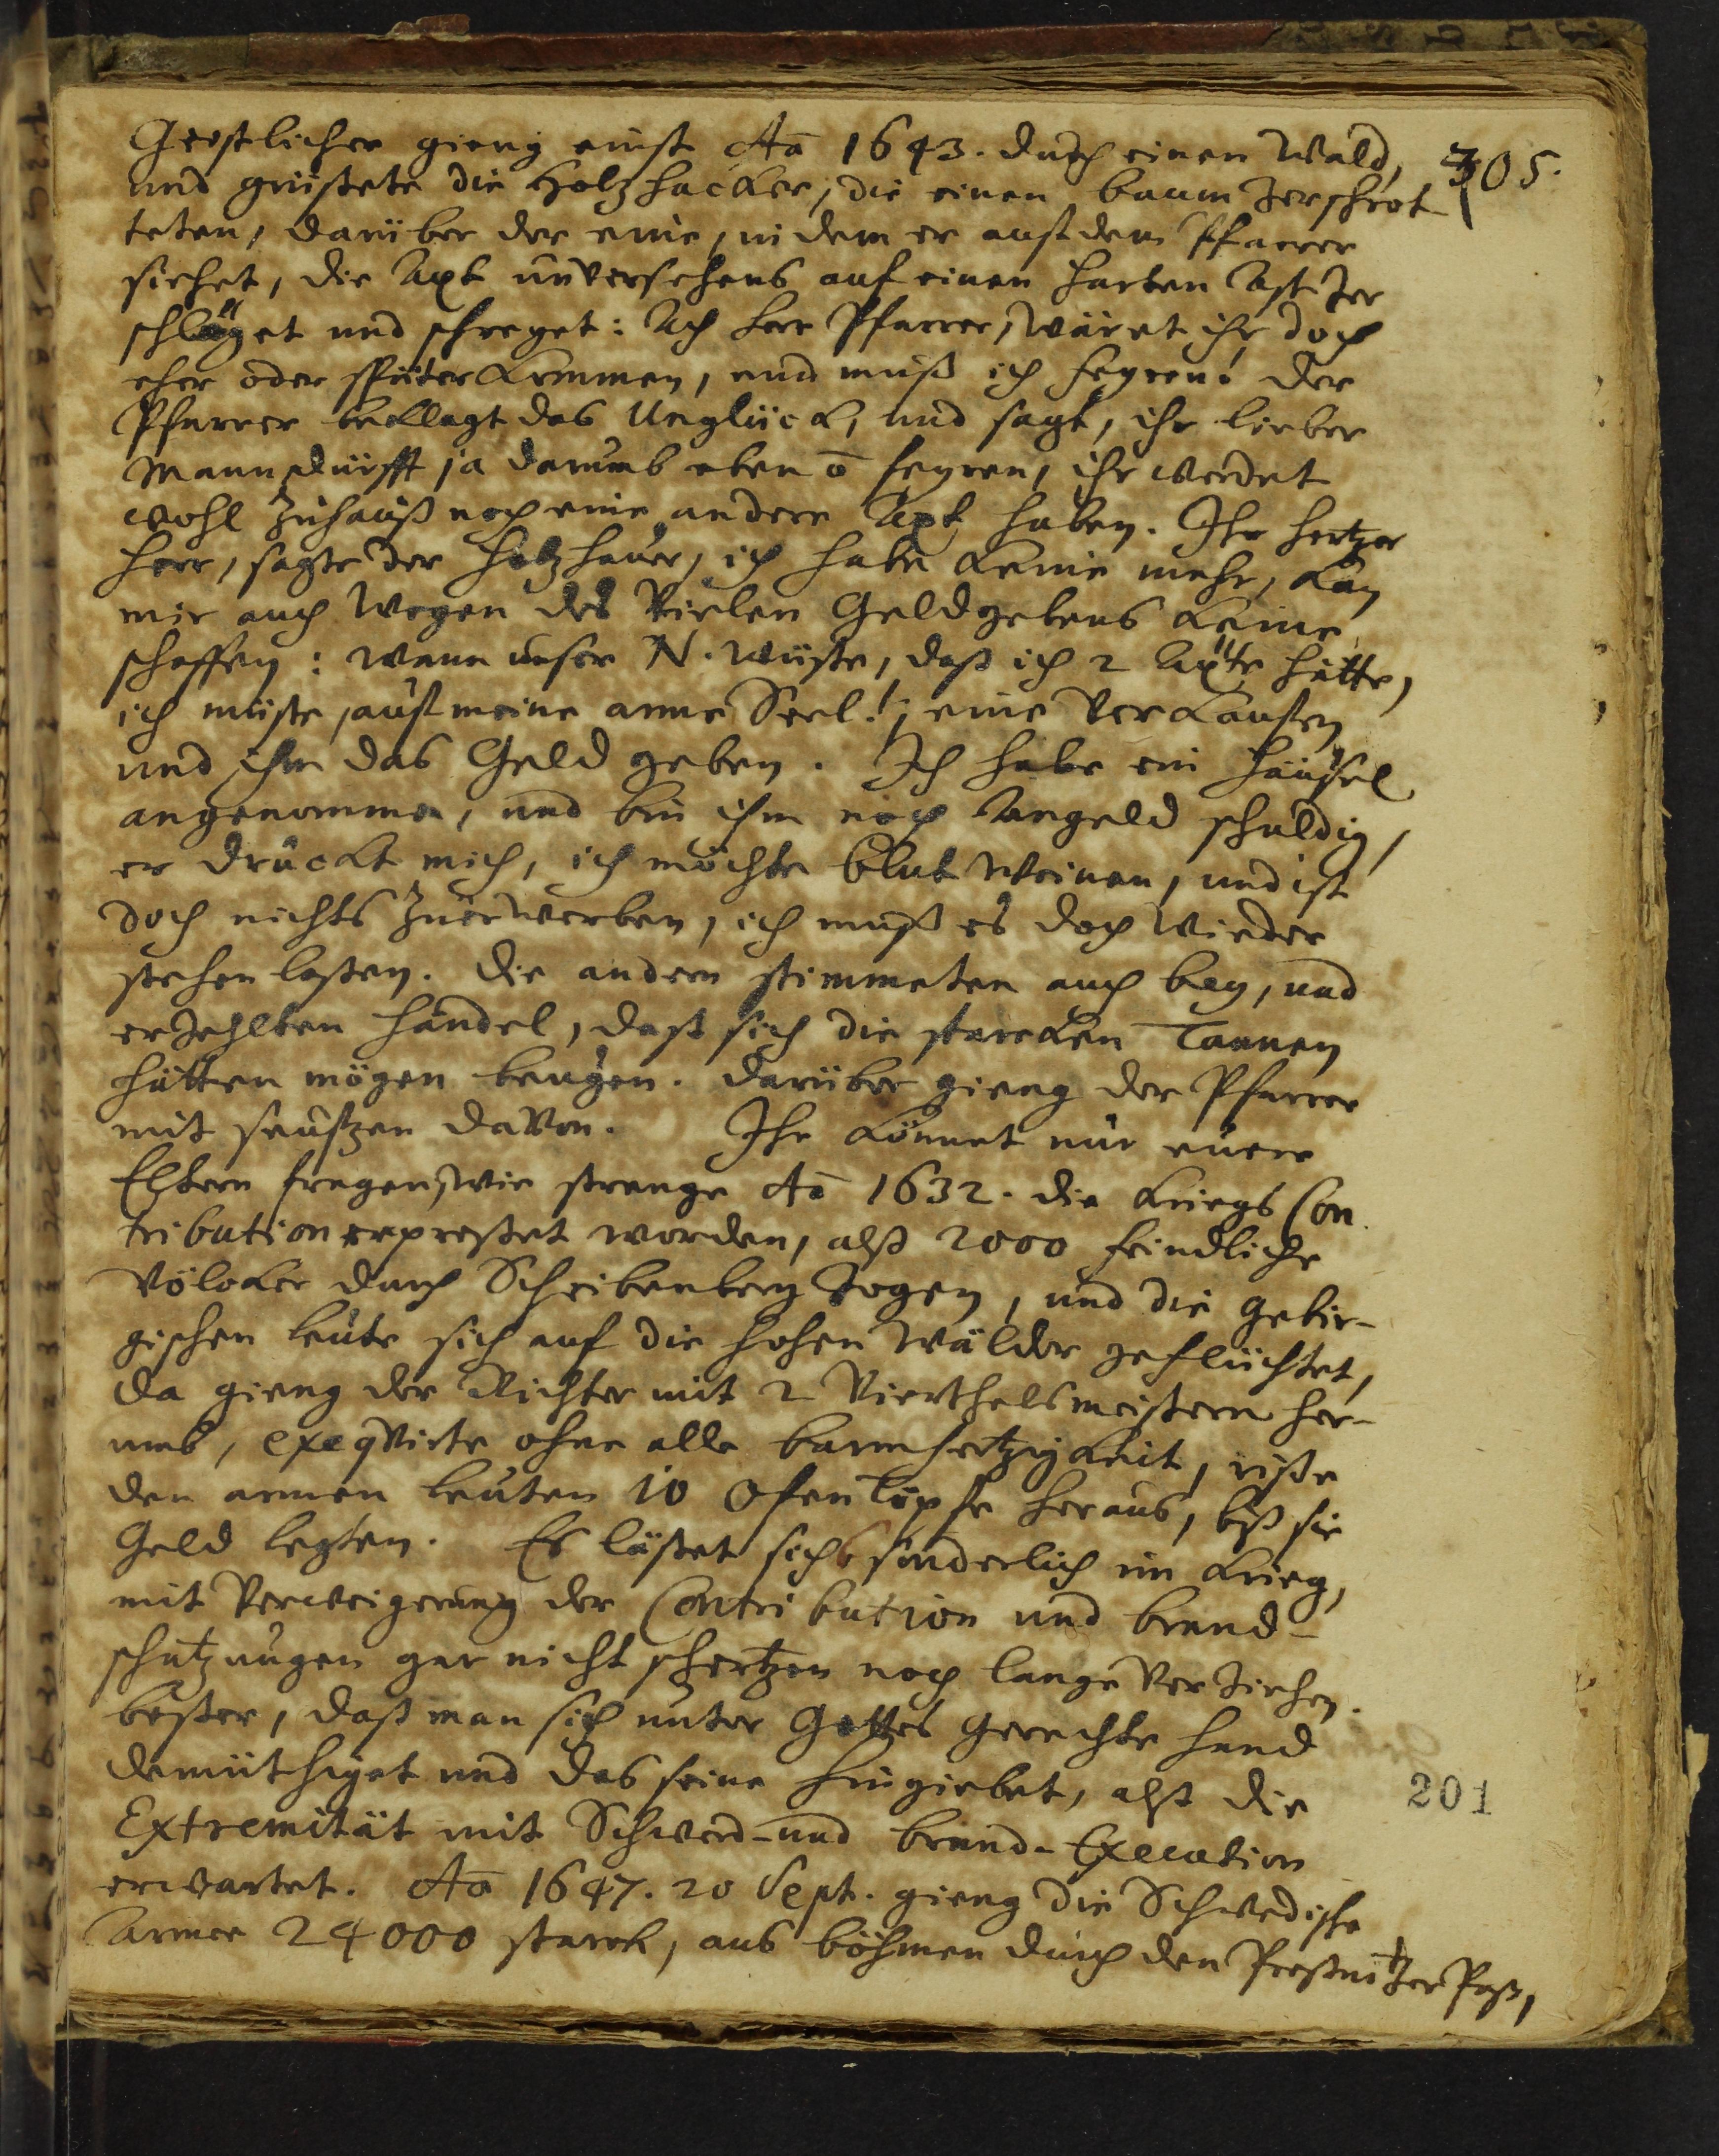 Geistlicher gieng einst Aō 1643. durch einen Wald,
305.
und grüßete die Holzhacker, die einen baum zerschrot-
teten, darüber der eine, in dem er auf den Pfarrer
siehet, die Axt unversehens auf einen harten Ast zer
schläget und schreyet: Ach herr Pfarrer, wäret ihr doch
eher oder später kommen, nun muß ich feyren! der
Pfarrer beklagt das Unglück, und sagt, ihr lieber
Mann, dürfft ja darumb eben ō feyren, ihr werdet
wohl zuhauß noch eine andere Axt haben. Ihr hertzer
herr, sagte der holzhauer, ich habe keine mehr, kan
mir auch wegen des vielen Geldgebens keine
schaffen: wann unser N. wüste, daß ich 2 Äxte hätte,
ich müste, auf meine arme Seel!, eine verkauffen
und ihm das Geld geben. Ich habe ein häußel
angenommen, und bin ihm noch Angeld schuldig,
er drückt mich, ich möchte blut weinen, und ist
doch nichts zuerwerben, ich muß es doch wieder
stehen laßen. die andern stimmeten auch bey, und
erzehlten händel, daß sich die starcken Tannen
hätten mögen beugen. darüber gieng der Pfarrer
mit seuftzen davon. Ihr könnet nur euere
Eltern fragen, wie strenge Aō 1632. die Kriegs Con-
tribution erpreßet worden, alß 2000 feindliche
Völcker durch Scheibenberg zogen, und die gebir-
gischen leute sich auf die hohen Wälder geflüchtet,
da gieng der Richter mit 2 Vierthelsmeistern her-
umb, exeqvirte ohne alle barmhertzigkeit, riße
den armen leuten 10 Ofentöpfe heraus, biß sie
Geld legten. Es läßet sichs sonderlich im Krieg,
mit Verweigerung der Contribution und brand-
schatzungen gar nicht schertzen noch lange verziehen.
beßer, daß man sich unter Gottes gerechte hand
demüthiget und das seine hingiebet, alß die
201
Extremität mit Schwerd- und brand-Execution
erwartet. Aō 1647. 20 Sept. gieng die Schwedische
Armee 24000 starck, aus böhmen durch den Preßnitzer Paß,